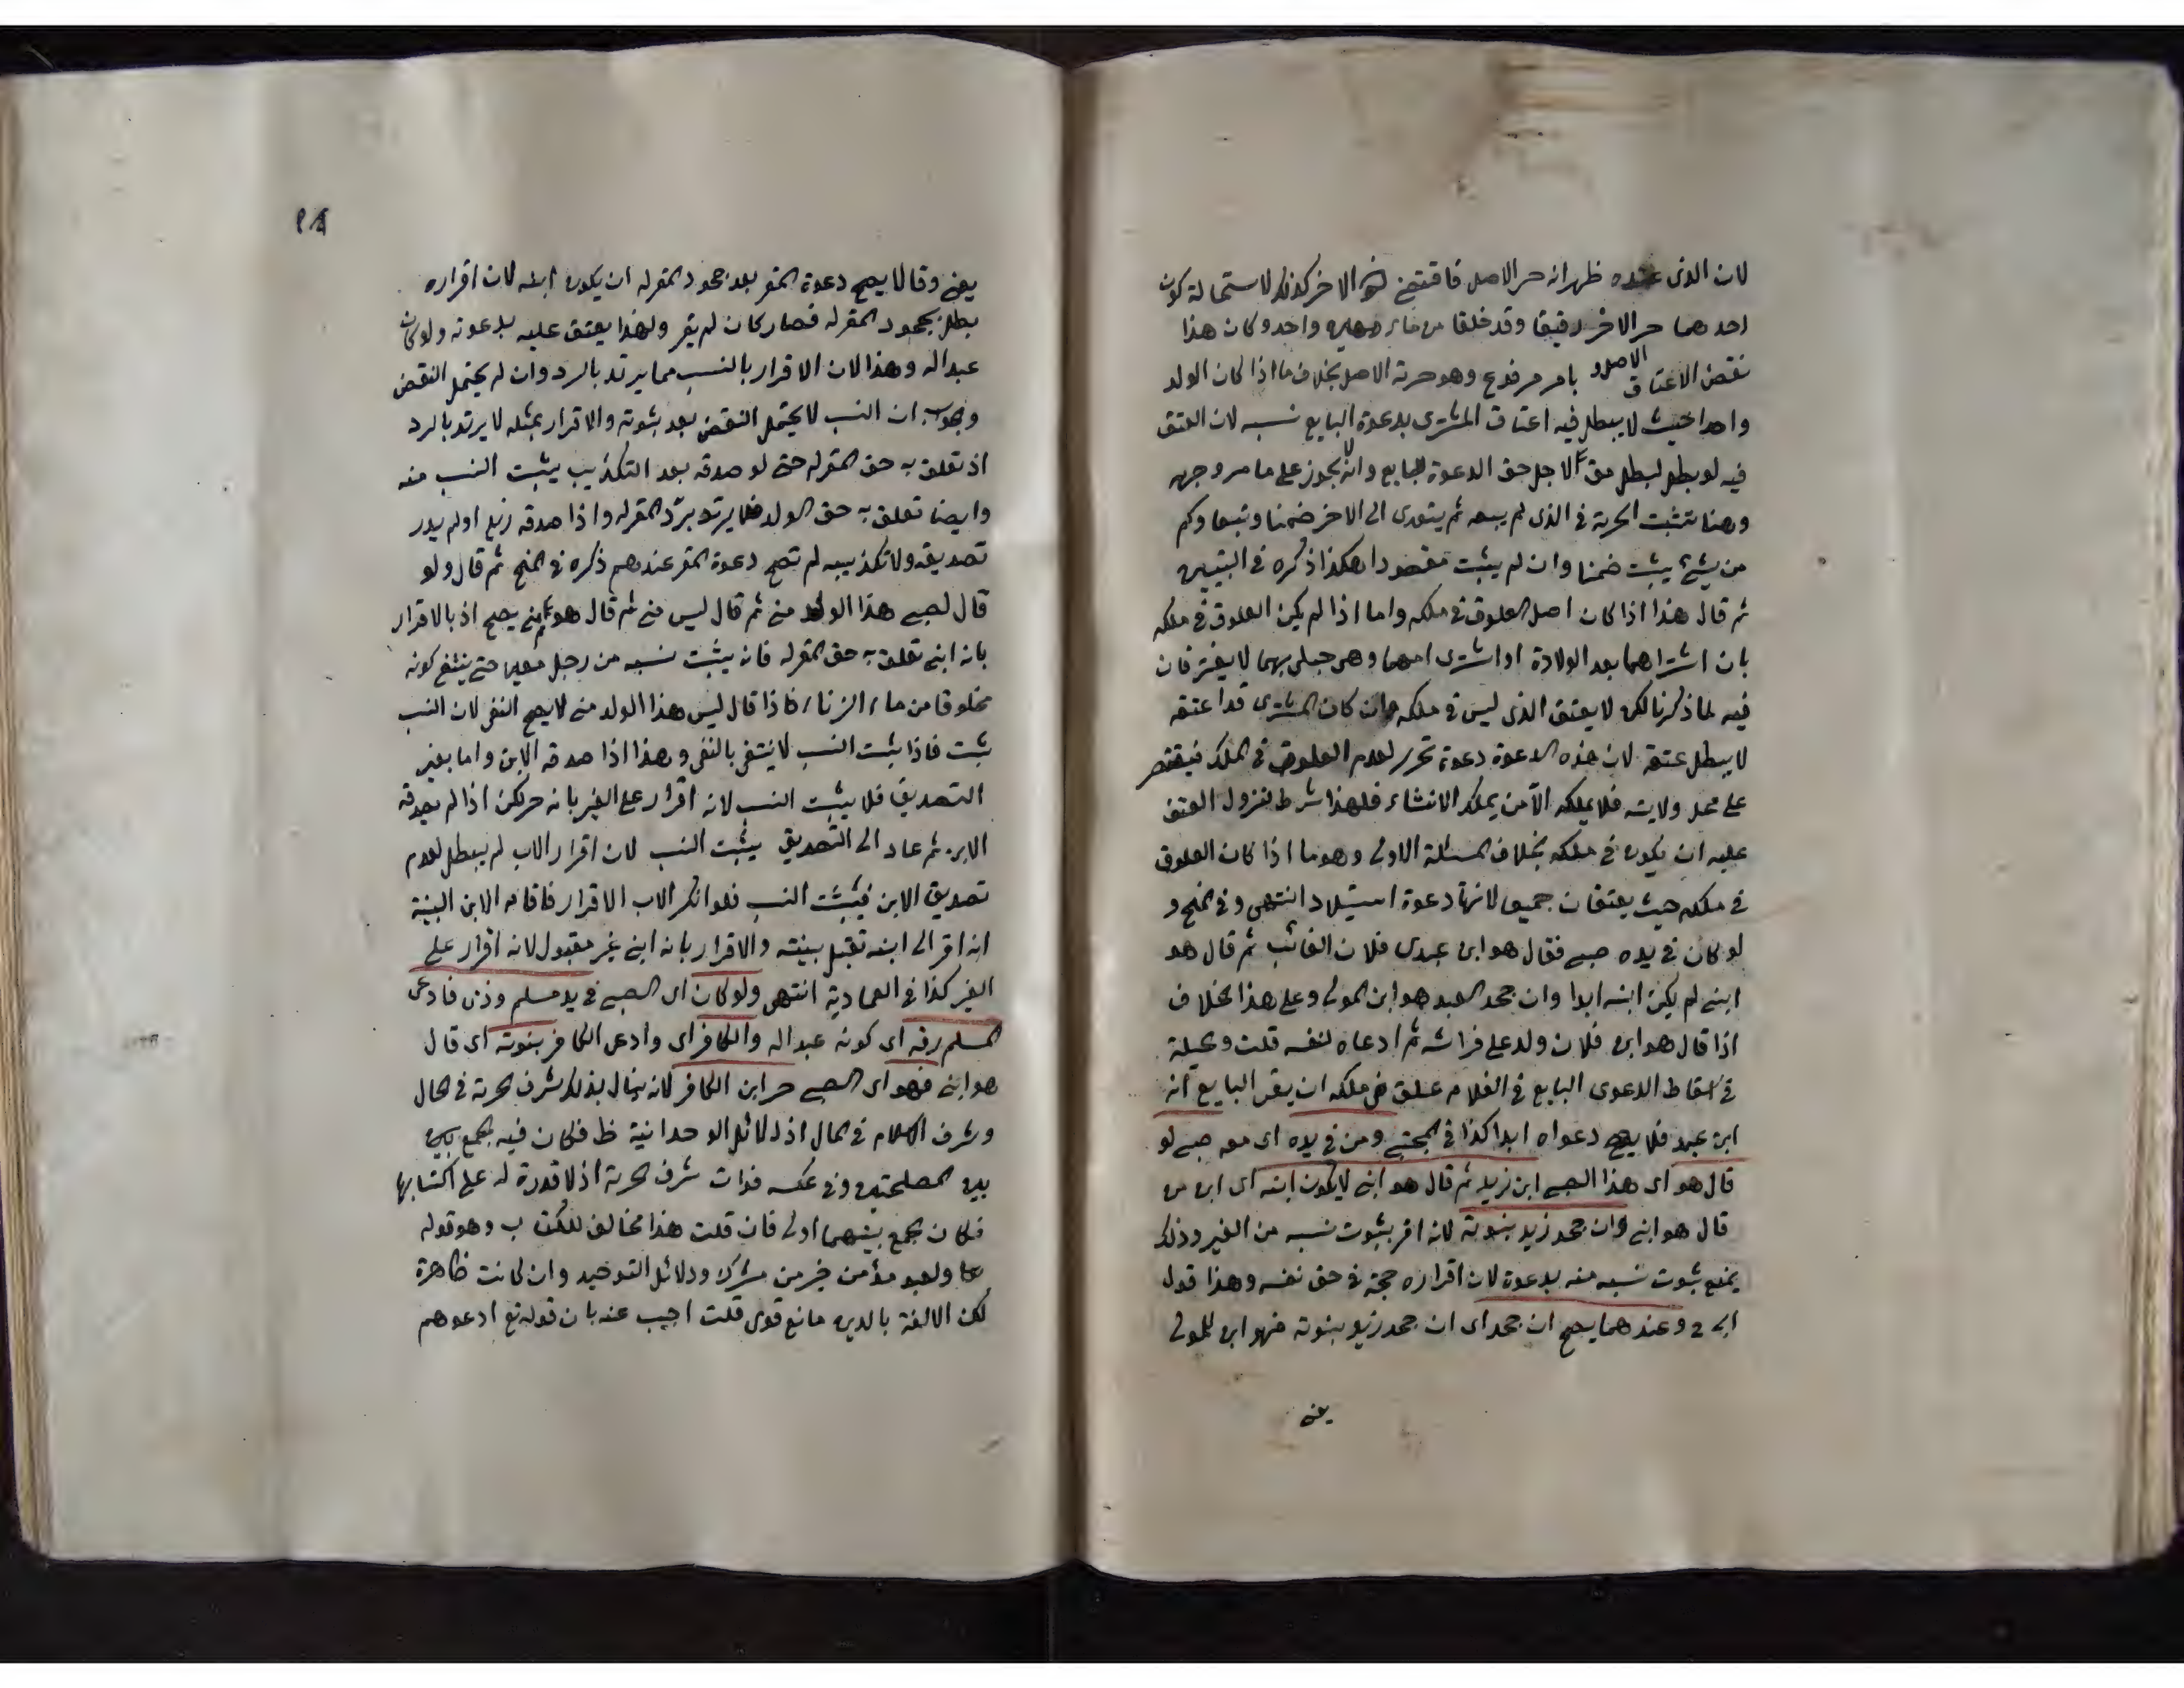 لان الذى عنده ظهر انه حر الاصل فاقتضى كون الاخر كذلك لاستحالة كون
احدهما حر الاخر رقيقا وقد خلقا من ماء واحد وكان هذا
نقض الاعتاق الاصلى بامر مرفوع وهو حرية الاصل بخلاف ما اذا كان الولد
واحدا حيث لا يبطل فيه اعتاق المشترى بدعوة البايع نسبه لان العتق
فيه لو بطل لبطل لاجل حق الدعوة للبايع وانه لا يجوز على ما مر وجهه
وهنا تثبت الحرية فى الذى لم يبعه ثم يتعدى الى الاخر ضمنا وتبعا وكم
من شئ يثبت ضمنا وان لم يثبت مقصودا هكذا ذكره فى التبيين
ثم قال هذا اذا كان اصل العلوق فى ملكه واما اذا لم يكن العلوق فى ملكه
بان اشتراهما بعد الولادة او اشترى امهما وهى حبلى بهما لا يفترقان
فيه لما ذكرنا لكن لا يعتق الذى ليس فى ملكه وان كان المشترى قد اعتقه
لا يبطل عتقه لان هذه الدعوة دعوة تحرير لعدم العلوق فى الملك فيقتصر
على محل ولايته فلا يملكه الا من يملك الانشاء فلهذا شرط لنزول العتق
عليه ان يكون فى ملكه بخلاف المسئلة الاولى وهو ما اذا كان العلوق
فى ملكه حيث يعتقان جميعا لانها دعوة استيلاد انتهى وفى المنح و
لو كان فى يده صبى فقال هو ابن عبدى فلان الغائب ثم قال هو
ابنى لم يكن ابنه ابدا وان جحد العبد هو ابن المولى وعلى هذا الخلاف
اذا قال هو ابن فلان ولد على فراشه ثم ادعاه لنفسه قلت وحيلة
فى اسقاط الدعوى البايع فى الغلام علق فى ملكه ان يقر البايع انه
ابن عبده فلا يصح دعواه ابدا كذا فى المجتبى ومن فى يده اى معه صبى لو
قال هو اى هذا الصبى ابن زيد ثم قال هو ابنى لا يكون ابنه اى ابن من
قال هو ابنى وان جحد زيد بنوته لانه اقر بثبوت نسبه من الغير وذلك
يمنع ثبوت نسبه منه بدعوة لان اقراره حجة فى حق نفسه وهذا قول
ابى ح وعندهما يصح ان جحد اى ان جحد زيد بنوته فهو ابن للمولى
يعنى
يعنى وقالا يصح دعوة المقر بعد جحود المقر له ان يكون ابنه لان اقراره
بطل بجحود المقر له فصار كان لم يقر ولهذا يعتق عليه بدعوته ولو كان
عبدا له وهذا لان الاقرار بالنسب مما يرتد بالرد وان لم يحتمل النقض
وبجوابه ان النسب لا يحتمل النقض بعد ثبوته والاقرار بمثله لا يرتد بالرد
اذ تعلق به حق المقر له حتى لو صدقه بعد التكذيب يثبت النسب منه
وايضا تعلق به حق الولد فلا يرتد برد المقر له واذا صدقه زيد او لم يدر
تصديقه ولا تكذيبه لم تصح دعوة المقر عندهم ذكره فى المنح ثم قال ولو
قال لصبى هذا الولد منى ثم قال ليس منى ثم قال هو منى يصح اذ بالاقرار
بانه ابنى تعلق به حق المقر له فانه يثبت نسبه من رجل معين حتى ينتفى كونه
مخلوقا من ماء الزنا فاذا قال ليس هذا الولد منى لا يصح النفى لان النسب
ثبت فاذا ثبت النسب لا ينتفى بالنفى وهذا اذا صدقه الابن واما بغير
التصديق فلا يثبت النسب لانه اقرار على الغير بانه حر لكن اذا لم يصدقه
الابن ثم عاد الى التصديق يثبت النسب لان اقرار الاب لم يبطل لعدم
تصديق الابن فيثبت النسب فلو انكر الاب الاقرار فاقام الابن البينة
انه اقر الى ابنه تقبل بينته والاقرار بانه ابنى غير مقبول لانه اقرار على
الغير كذا فى العمادية انتهى ولو كان اى الصبى فى يد مسلم وذمى فادعى
المسلم رقه اى كونه عبدا له والكافر اى وادعى الكافر بنوته اى قال
هو ابنى فهو اى الصبى حر ابن الكافر لانه ينال بذلك شرف الحرية فى الحال
وشرف الاسلام فى المال اذ دلائل الوحدانية ظ فكان فيه الجمع بين
بين المصلحتين وفى عكسه فوات شرف الحرية اذ لا قدرة له على اكتسابها
فكان الجمع بينهما اولى فان قلت هذا مخالف للكتاب وهو قوله
تعا ولعبد مؤمن خير من مشرك ودلائل التوحيد وان كانت ظاهرة
لكن الالفة بالدين مانع قوى قلت اجيب عنه بان قوله تع ادعوهم